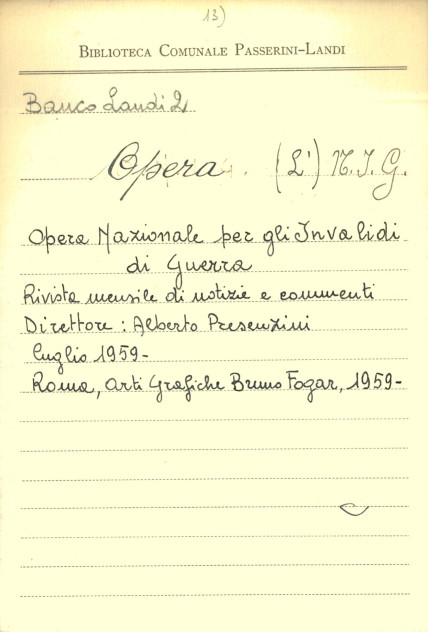 13)
BIBLIOTECA COMUNALE PASSERINI-LANDI
Banco Landi 2
Opera (L') N.I.G.
Opera Nazionale per gli Invalidi
di Guerra
Rivista mensile di notizie e commenti
Direttore: Alberto Presenzini
luglio 1959-
Roma, Arti Grafiche Bruno Fogar, 1959-